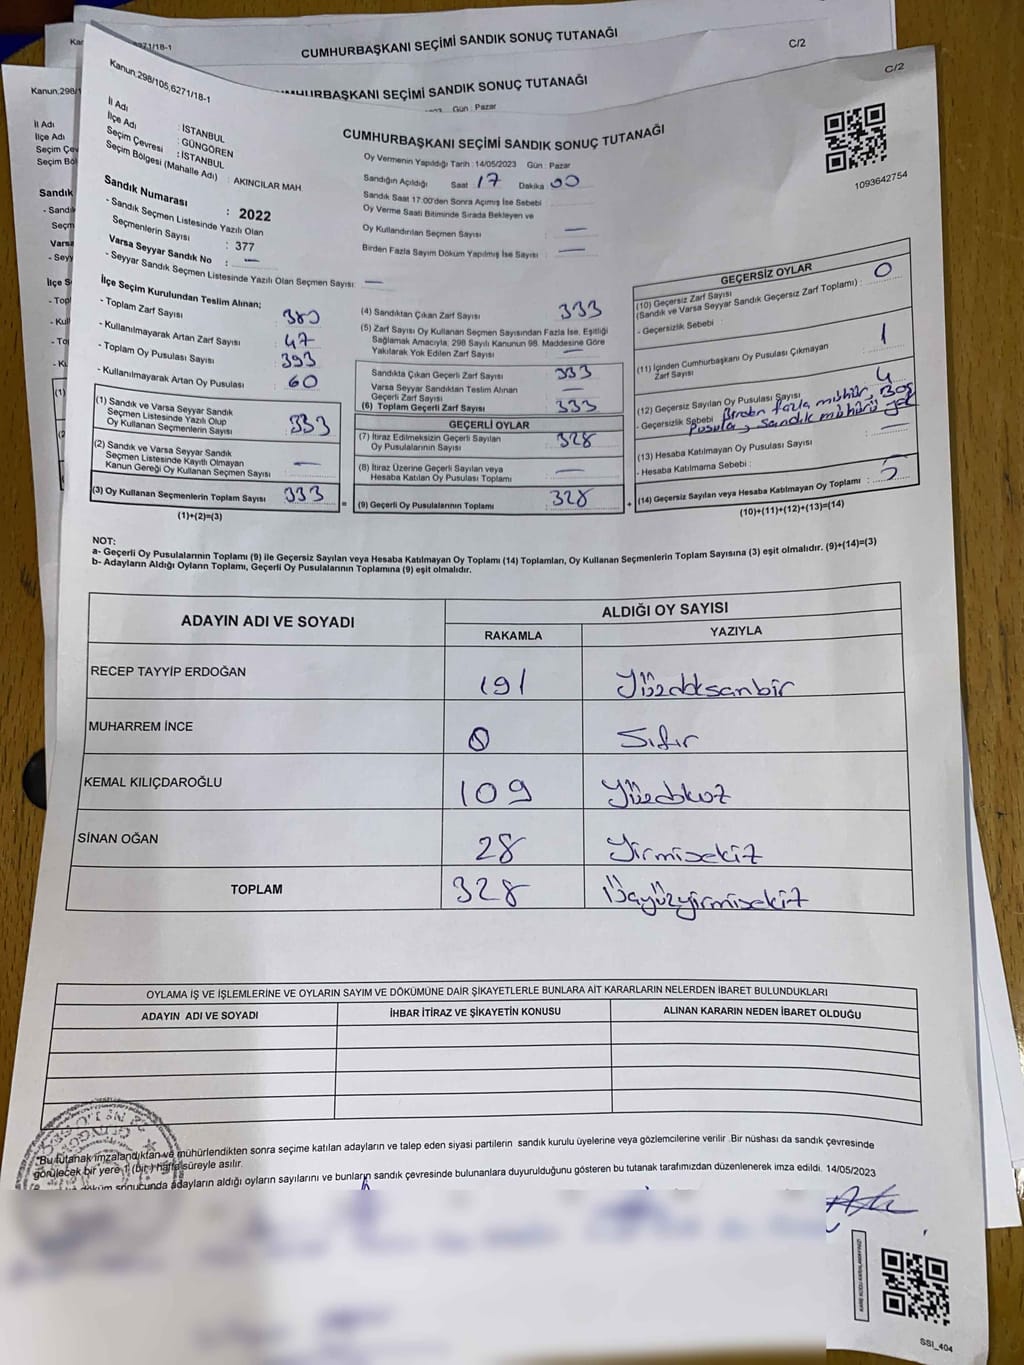 CUMHURBAŞKANI SEÇİMİ SANDIK SONUÇ TUTANAĞI
C/2
271/18-1
URBAŞKANI SEÇİMİ SANDIK SONUÇ TUTANAĞI
Gün : Pazar
Kanun.298/
İl Adı
İlçe Adı
Sandık
Kanun.298/105,6271/18-1
C/2
CUMHURBAŞKANI SEÇİMİ SANDIK SONUÇ TUTANAĞI
1093642754
İl Adı : İSTANBUL
İlçe Adı : GÜNGÖREN
Seçim Çevresi : İSTANBUL
Seçim Bölgesi (Mahalle Adı) : AKINCILAR MAH
Sandık Numarası : 2022
- Sandık Seçmen Listesinde Yazılı Olan
Seçmenlerin Sayısı : 377
Varsa Seyyar Sandık No : —
- Seyyar Sandık Seçmen Listesinde Yazılı Olan Seçmen Sayısı : —
Oy Vermenin Yapıldığı Tarih : 14/05/2023 Gün : Pazar
Sandığın Açıldığı Saat : 17 Dakika : 00
Sandık Saat 17:00'den Sonra Açımış İse Sebebi :
Oy Verme Saati Bitiminde Sırada Bekleyen ve
Oy Kullandırılan Seçmen Sayısı : —
Birden Fazla Sayım Döküm Yapılmış İse Sayısı : —
İlçe Seçim Kurulundan Teslim Alınan;
- Toplam Zarf Sayısı : 380
- Kullanılmayarak Artan Zarf Sayısı : 47
- Toplam Oy Pusulası Sayısı : 393
- Kullanılmayarak Artan Oy Pusulası : 60
(1) Sandık ve Varsa Seyyar Sandık
Seçmen Listesinde Yazılı Olup
Oy Kullanan Seçmenlerin Sayısı : 333
(2) Sandık ve Varsa Seyyar Sandık
Seçmen Listesinde Kayıtlı Olmayan
Kanun Gereği Oy Kullanan Seçmen Sayısı : —
(3) Oy Kullanan Seçmenlerin Toplam Sayısı : 333
(1)+(2)=(3)
(4) Sandıktan Çıkan Zarf Sayısı : 333
(5) Zarf Sayısı Oy Kullanan Seçmen Sayısından Fazla İse, Eşitliği
Sağlamak Amacıyla; 298 Sayılı Kanunun 98. Maddesine Göre
Yakılarak Yok Edilen Zarf Sayısı : —
Sandıkta Çıkan Geçerli Zarf Sayısı : 333
Varsa Seyyar Sandıktan Teslim Alınan
Geçerli Zarf Sayısı : —
(6) Toplam Geçerli Zarf Sayısı : 333
GEÇERLİ OYLAR
(7) İtiraz Edilmeksizin Geçerli Sayılan
Oy Pusulalarının Sayısı : 328
(8) İtiraz Üzerine Geçerli Sayılan veya
Hesaba Katılan Oy Pusulası Toplamı : —
(9) Geçerli Oy Pusulalarının Toplamı : 328
GEÇERSİZ OYLAR
(10) Geçersiz Zarf Sayısı
(Sandık ve Varsa Seyyar Sandık Geçersiz Zarf Toplamı) : 0
- Geçersizlik Sebebi :
(11) İçinden Cumhurbaşkanı Oy Pusulası Çıkmayan
Zarf Sayısı : 1
(12) Geçersiz Sayılan Oy Pusulası Sayısı : 4
- Geçersizlik Sebebi : Birden fazla mühür, Boş
Pusula, sandık mührü yok
(13) Hesaba Katılmayan Oy Pusulası Sayısı : —
- Hesaba Katılmama Sebebi :
(14) Geçersiz Sayılan veya Hesaba Katılmayan Oy Toplamı : 5
(10)+(11)+(12)+(13)=(14)
NOT:
a- Geçerli Oy Pusulalarının Toplamı (9) ile Geçersiz Sayılan veya Hesaba Katılmayan Oy Toplamı (14) Toplamları, Oy Kullanan Seçmenlerin Toplam Sayısına (3) eşit olmalıdır. (9)+(14)=(3)
b- Adayların Aldığı Oyların Toplamı, Geçerli Oy Pusulalarının Toplamına (9) eşit olmalıdır.
ADAYIN ADI VE SOYADI ALDIĞI OY SAYISI
RAKAMLA YAZIYLA
RECEP TAYYİP ERDOĞAN 191 Yüzdoksanbir
MUHARREM İNCE 0 Sıfır
KEMAL KILIÇDAROĞLU 109 Yüzdokuz
SİNAN OĞAN 28 Yirmisekiz
TOPLAM 328 Üçyüzyirmisekiz
OYLAMA İŞ VE İŞLEMLERİNE VE OYLARIN SAYIM VE DÖKÜMÜNE DAİR ŞİKAYETLERLE BUNLARA AİT KARARLARIN NELERDEN İBARET BULUNDUKLARI
ADAYIN ADI VE SOYADI İHBAR İTİRAZ VE ŞİKAYETİN KONUSU ALINAN KARARIN NEDEN İBARET OLDUĞU
"Bu tutanak imzalandıktan ve mühürlendikten sonra seçime katılan adayların ve talep eden siyasi partilerin sandık kurulu üyelerine veya gözlemcilerine verilir .Bir nüshası da sandık çevresinde
görülecek bir yere 1 (bir) hafta süreyle asılır.
döküm sonucunda adayların aldığı oyların sayılarını ve bunların sandık çevresinde bulunanlara duyurulduğunu gösteren bu tutanak tarafımızdan düzenlenerek imza edildi. 14/05/2023
SSI_404